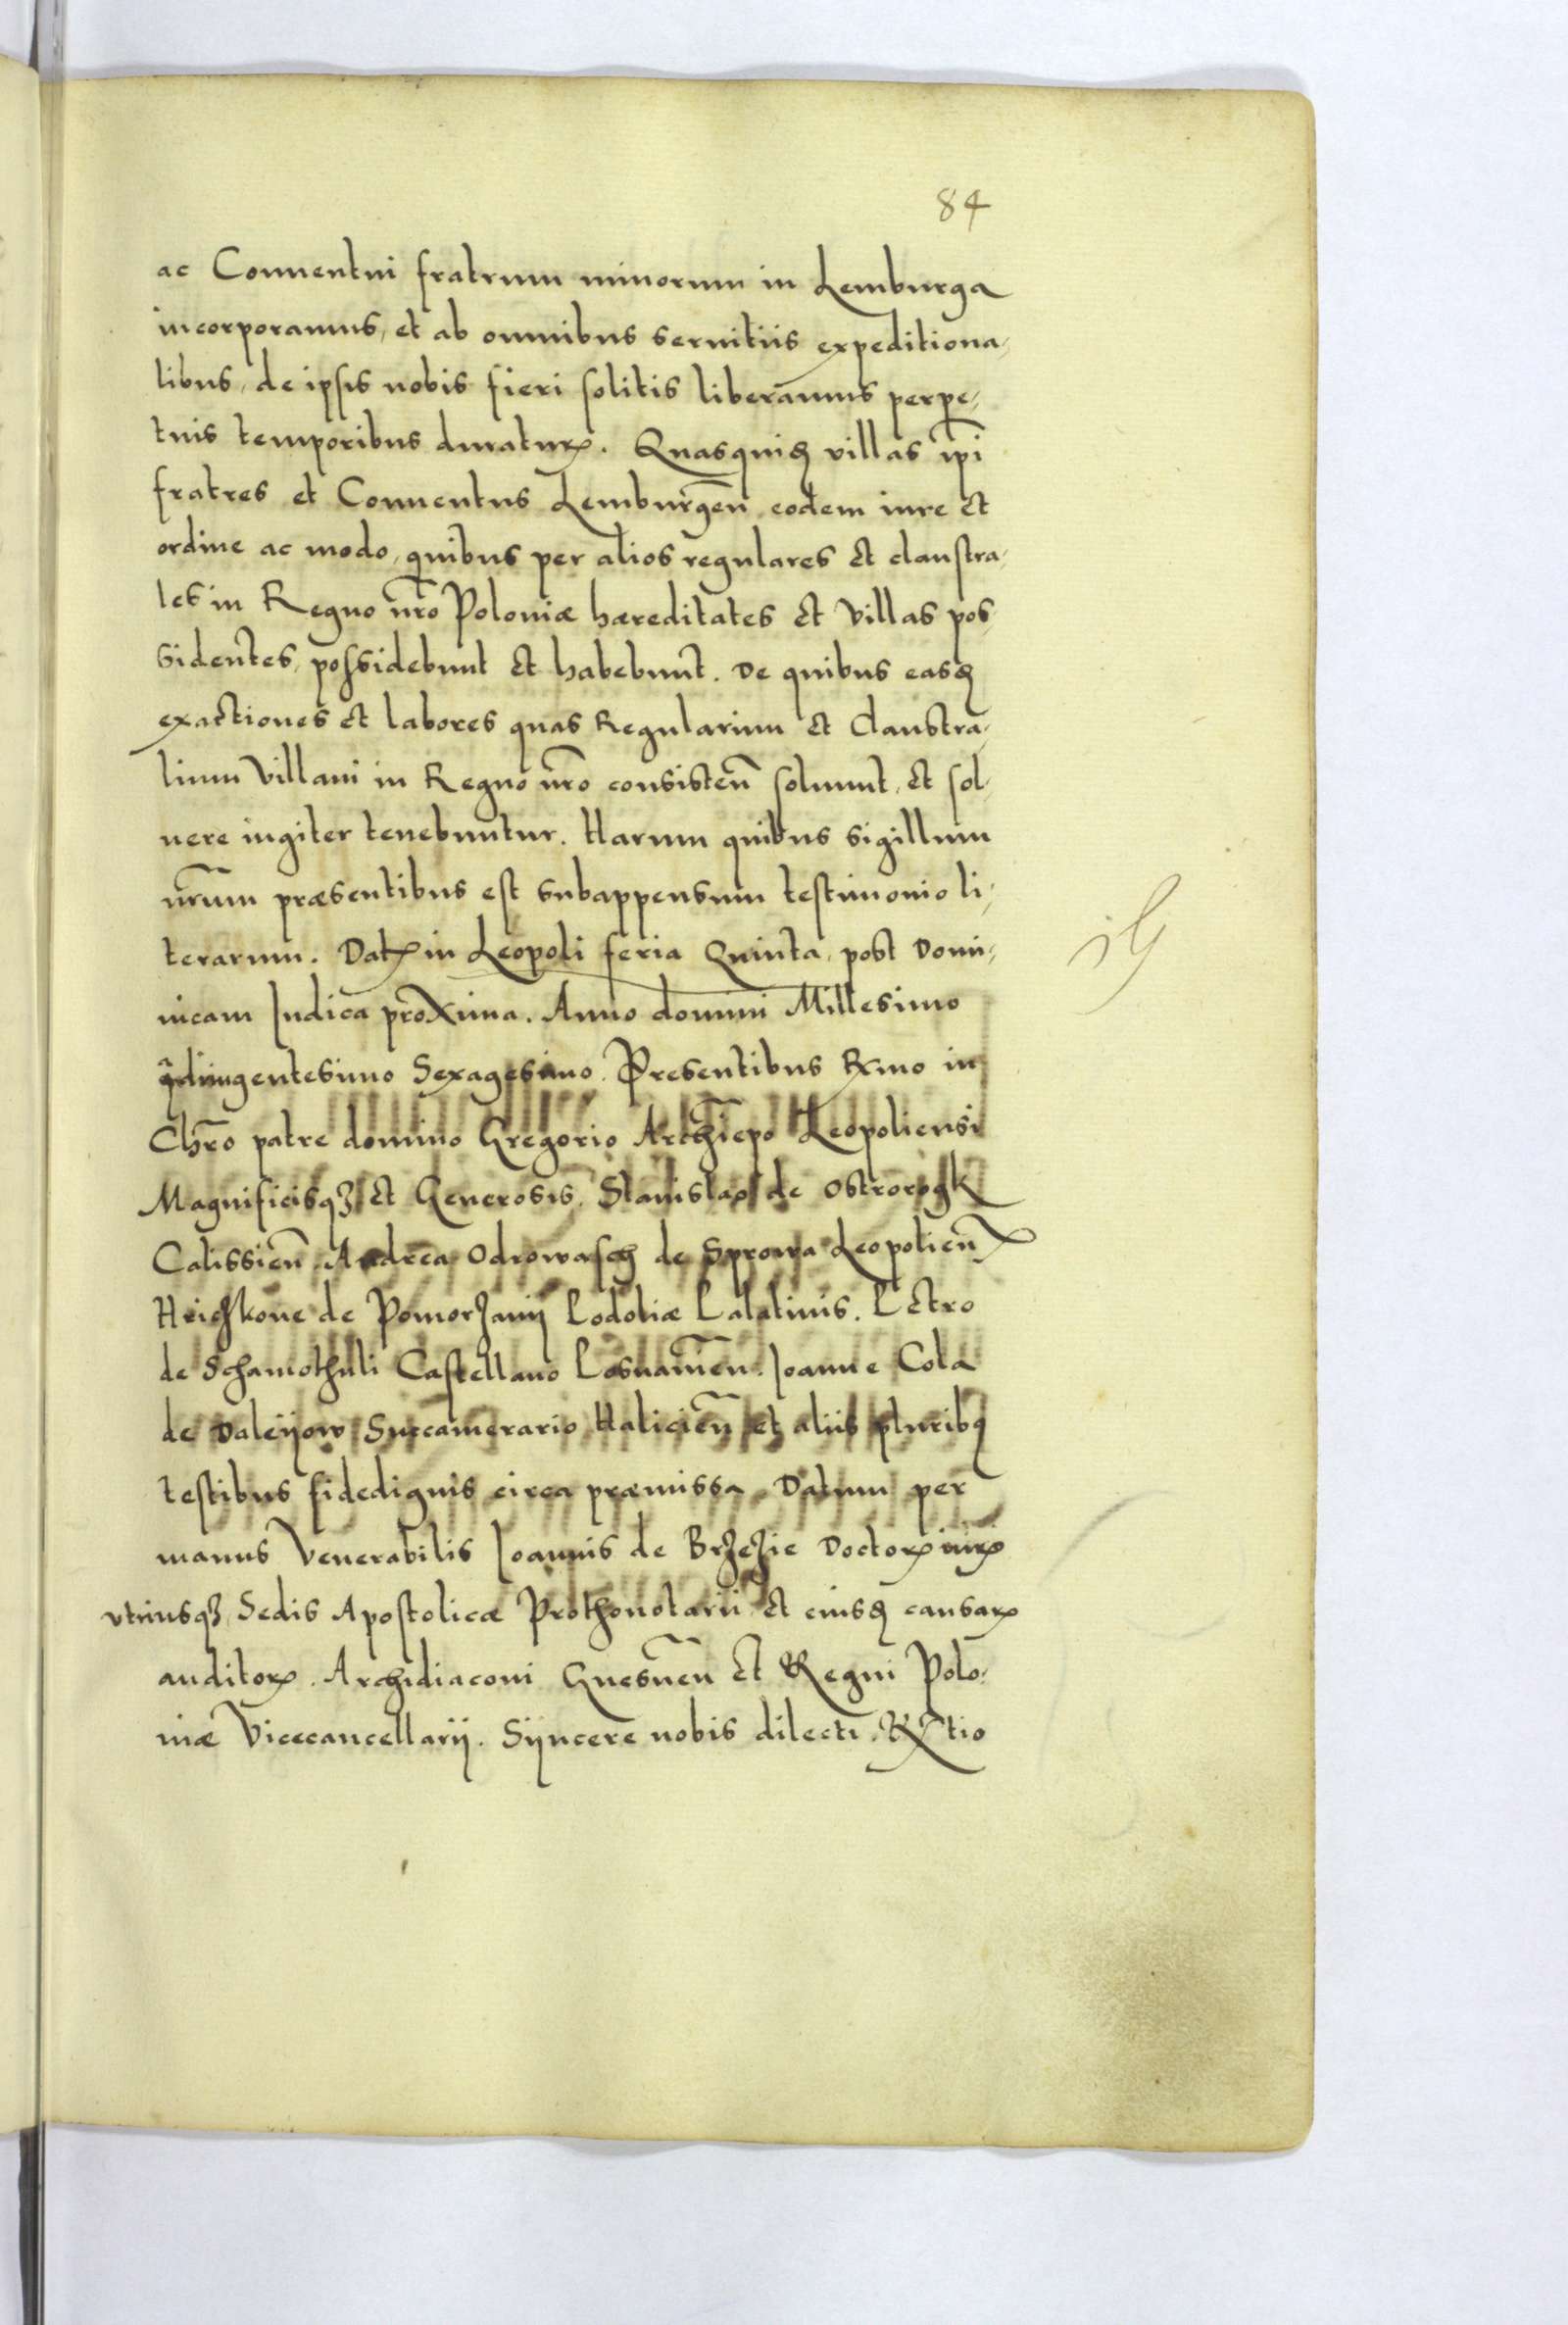 84
ac Conuentui fratrum minorum in Lemburga
incorporamus, et ab omnibus seruitiis expeditiona,
libus, de ipsis nobis fieri solitis liberamus perpe,
tuis temporibus duraturꝝ. Quasquidꝫ villas ip̄i
fratres et Conuentus Lemburgen̄, eodem iure et
ordine ac modo, quibus per alios regulares et claustra,
les in Regno nr̄o Poloniæ hæreditates et villas pos,
sidentes, possidebunt et habebunt. De quibus easdꝫ
exactiones et labores quas Regularium et Claustra,
lium Villani in Regno nr̄o consisten̄ soluunt, et sol,
uere iugiter tenebuntur. Harum quibus sigillum
nr̄um præsentibus est subappensum testimonio li,
terarum. Datꝝ in Leopoli feria Quinta, post Domi,
nicam Iudica proxima. Anno domini Millesimo
qdringentesimo Sexagesimo. Presentibus Rxmo in
Chr̄o patre domino Gregorio Archīepo Leopoliensi
Magnificisqꝫ et Generosis. Stanislao de Ostrorogk
Calissien̄. Andrea Odrowasch de Sprowa Leopolien̄
Hriczkone de Pomorzanij Podoliæ Palatinis. Petro
de Schamothuli Castellano Posnanien̄. Ioanne Cola
de Daleijow Succamerario Halicien̄ et aliis pluribꝫ
testibus fidedignis circa præmissa. Datum per
manus Venerabilis Ioannis de Brzezie Doctorꝝ iurꝝ
vtriusqꝫ, Sedis Apostolicæ Prothonotarii et eiusdꝫ causarꝝ
auditorꝝ. Archidiaconi Gnesnen̄ et Regni Polo,
niæ Vicecancellarij. Sijncere nobis dilecti. Rx̄tio